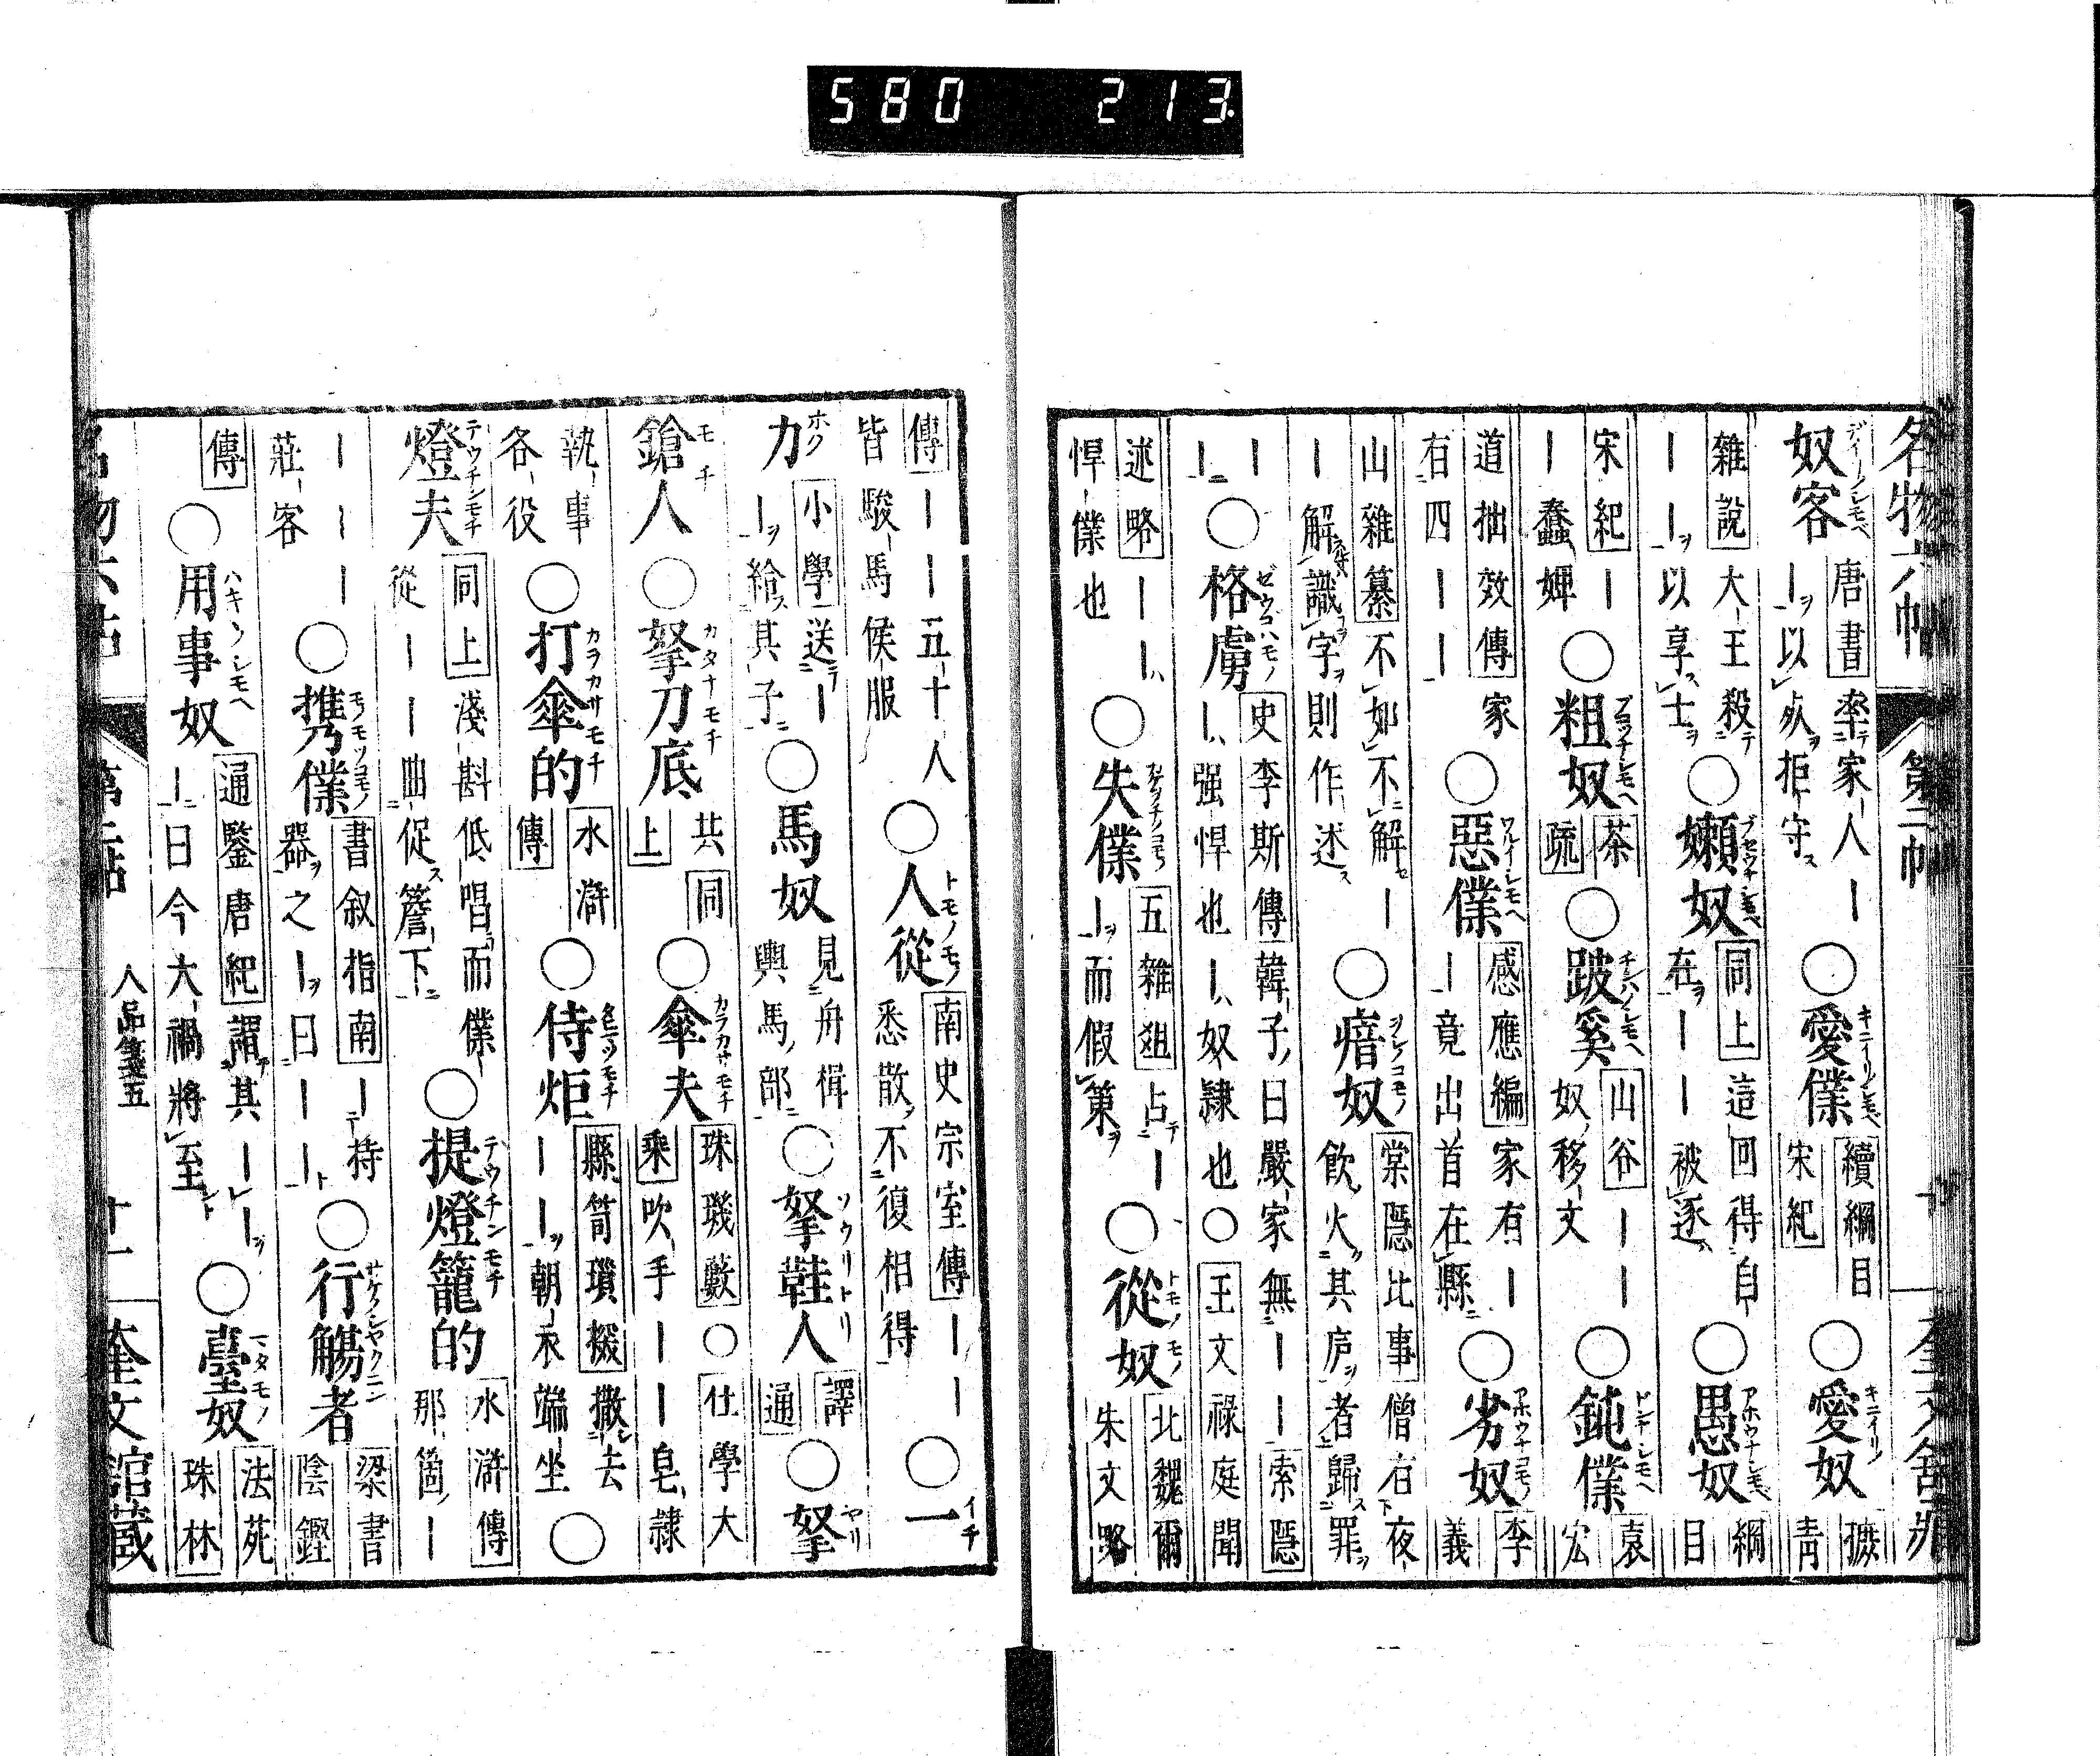 580 213
名物六帖 第二帖 十 奎文館藏
奴客 唐書 率家人｜｜以疾拒守 ○愛僕 續綱目宋紀 ○愛奴 摭青
雜說 大王殺｜｜以享士 ○嬾奴 同上 這回得自在｜｜被逐 ○愚奴 綱目
宋紀 ｜｜蠢婢 ○粗奴 茶疏 ○跛奚 山谷 ｜｜奴移文 ○鈍僕 袁宏
道拙效傳 家有四｜｜ ○惡僕 感應編 家有｜｜竟出首在縣 ○劣奴 李義
山雜纂 不如不解｜｜解識字則作述 ○瘖奴 棠隱比事 僧右夜飲火其庐者歸罪
｜｜ ○格虜 史李斯傳 韓子曰嚴家無｜｜ 索隱 ｜强悍也｜奴隸也○王文祿庭聞
述略 ｜｜悍僕也 ○失僕 五雜俎 占｜｜而假策 ○從奴 北魏爾朱文略
傳 ｜｜五十人皆駿馬侯服 ○人從 南史宗室傳 ｜｜悉散不復相得 ○一
力 小學 送｜｜給其子 ○馬奴 見舟楫輿馬部 ○拏鞋人 譯通 ○拏
鎗人 ○拏刀底 共同上 ○傘夫 珠璣藪○仕學大乘 吹手｜｜皂隸
執事各役 ○打傘的 水滸傳 ○侍炬 縣笥瑣掇 撒去｜｜朝衣端坐 ○
燈夫 同上 淺斟低唱而僕從｜｜曲促簷下 ○提燈籠的 水滸傳 那箇｜
｜｜｜莊客 ○携僕 書叙指南 ｜持器之｜曰｜｜ ○行觴者 梁書陰鏗
傳 ○用事奴 通鑒唐紀 謂其｜｜｜曰今大禍將至 ○臺奴 法苑珠林
名物六帖 第二帖 人品箋五 十一 奎文館藏